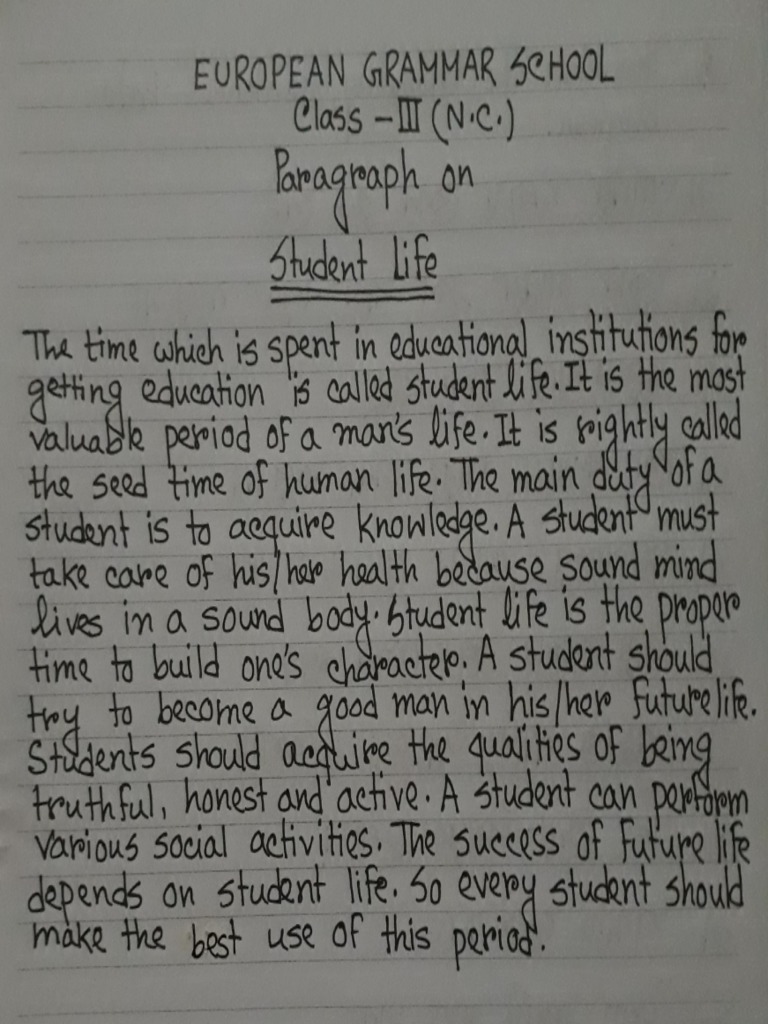 EUROPEAN GRAMMAR SCHOOL
Class - III (N.C.)
Paragraph on
Student Life
The time which is spent in educational institutions for
getting education is called student life. It is the most
valuable period of a man's life. It is rightly called
the seed time of human life. The main duty of a
student is to acquire knowledge. A student must
take care of his/her health because sound mind
lives in a sound body. Student life is the proper
time to build one's character. A student should
try to become a good man in his/her future life.
Students should acquire the qualities of being
truthful, honest and active. A student can perform
various social activities. The success of future life
depends on student life. So every student should
make the best use of this period.